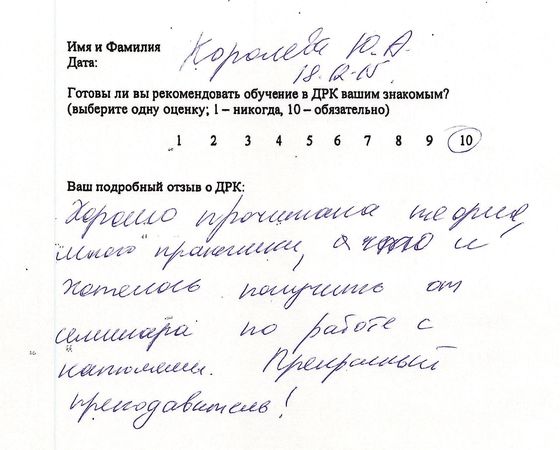 Имя и Фамилия Королева Ю.А.
Дата: 18.12.15.
Готовы ли вы рекомендовать обучение в ДРК вашим знакомым?
(выберите одну оценку; 1 – никогда, 10 – обязательно)
1 2 3 4 5 6 7 8 9 10
Ваш подробный отзыв о ДРК:
Хорошо прочитана теория,
"много" практики, я что и
хотелось получить от
семинара по работе с
Прекрасный
преподаватель!